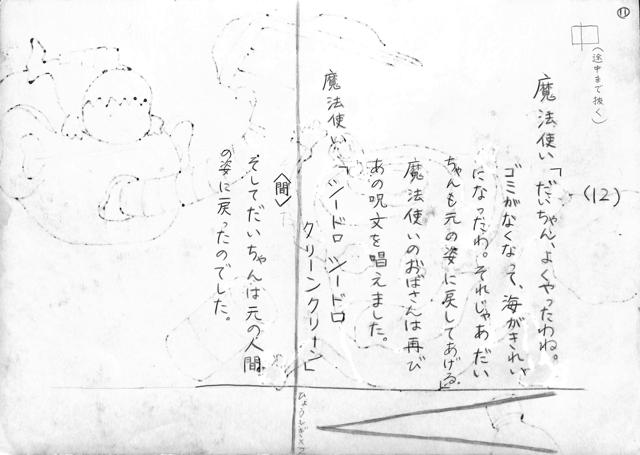 ⑪
(途中まで抜く)
(12)
魔法使い「だいちゃん、よくやったわね。
ゴミがなくなって、海がきれい
になったわ。それじゃあだい
ちゃんも元の姿に戻してあげる」
魔法使いのおばさんは再び
あの呪文を唱えました。
魔法使い「シードロ シードロ
クリーンクリーン」
〈間〉
そしてだいちゃんは元の人間
の姿に戻ったのでした。